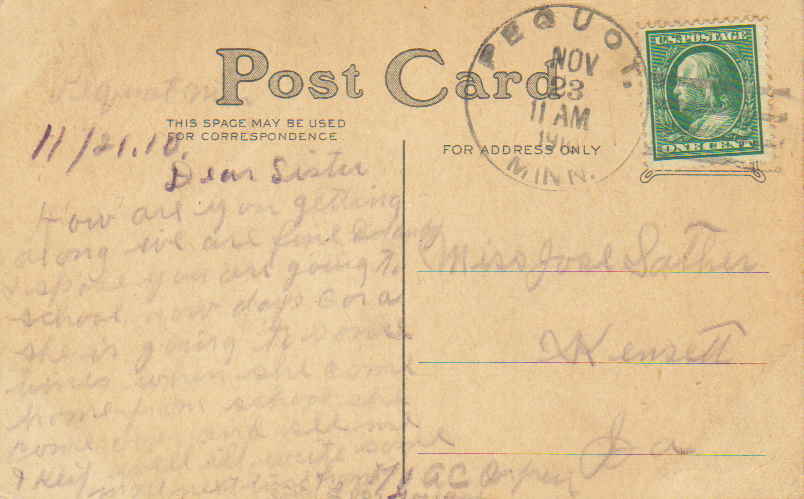 Post Card
THIS SPACE MAY BE USED
FOR CORRESPONDENCE.
FOR ADDRESS ONLY
PEQUOT,
NOV
23
11 AM
MINN.
U.S. POSTAGE
ONE CENT
Pequot
11/21.10
Dear Sister
How are you getting
along we are fine
I spose you are going to
school now days Cora
she is going to
times when she come
home from school she
come and see me
I will write some
more next time
Miss Jose Sather
Kensett
Ia